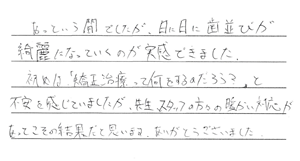 あっという間でしたが、日に日に歯並びが
綺麗になっていくのが実感できました。
初めは「矯正治療って何をするのだろう?」と
不安を感じていましたが、先生、スタッフの方々の暖かい対応が
あってこその結果だと思います。ありがとうございました。